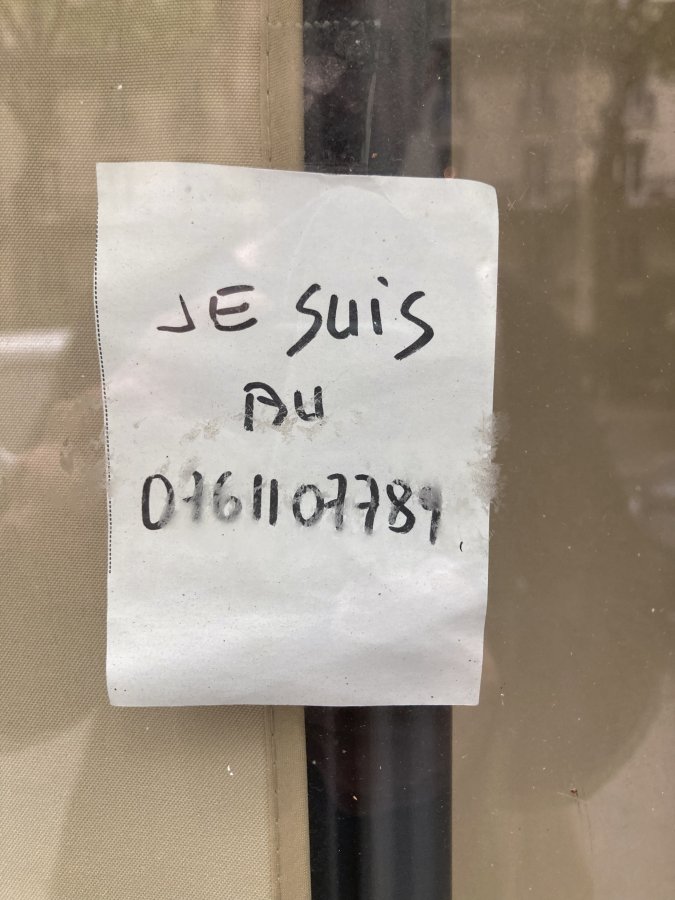 JE suis
AU
0761107789